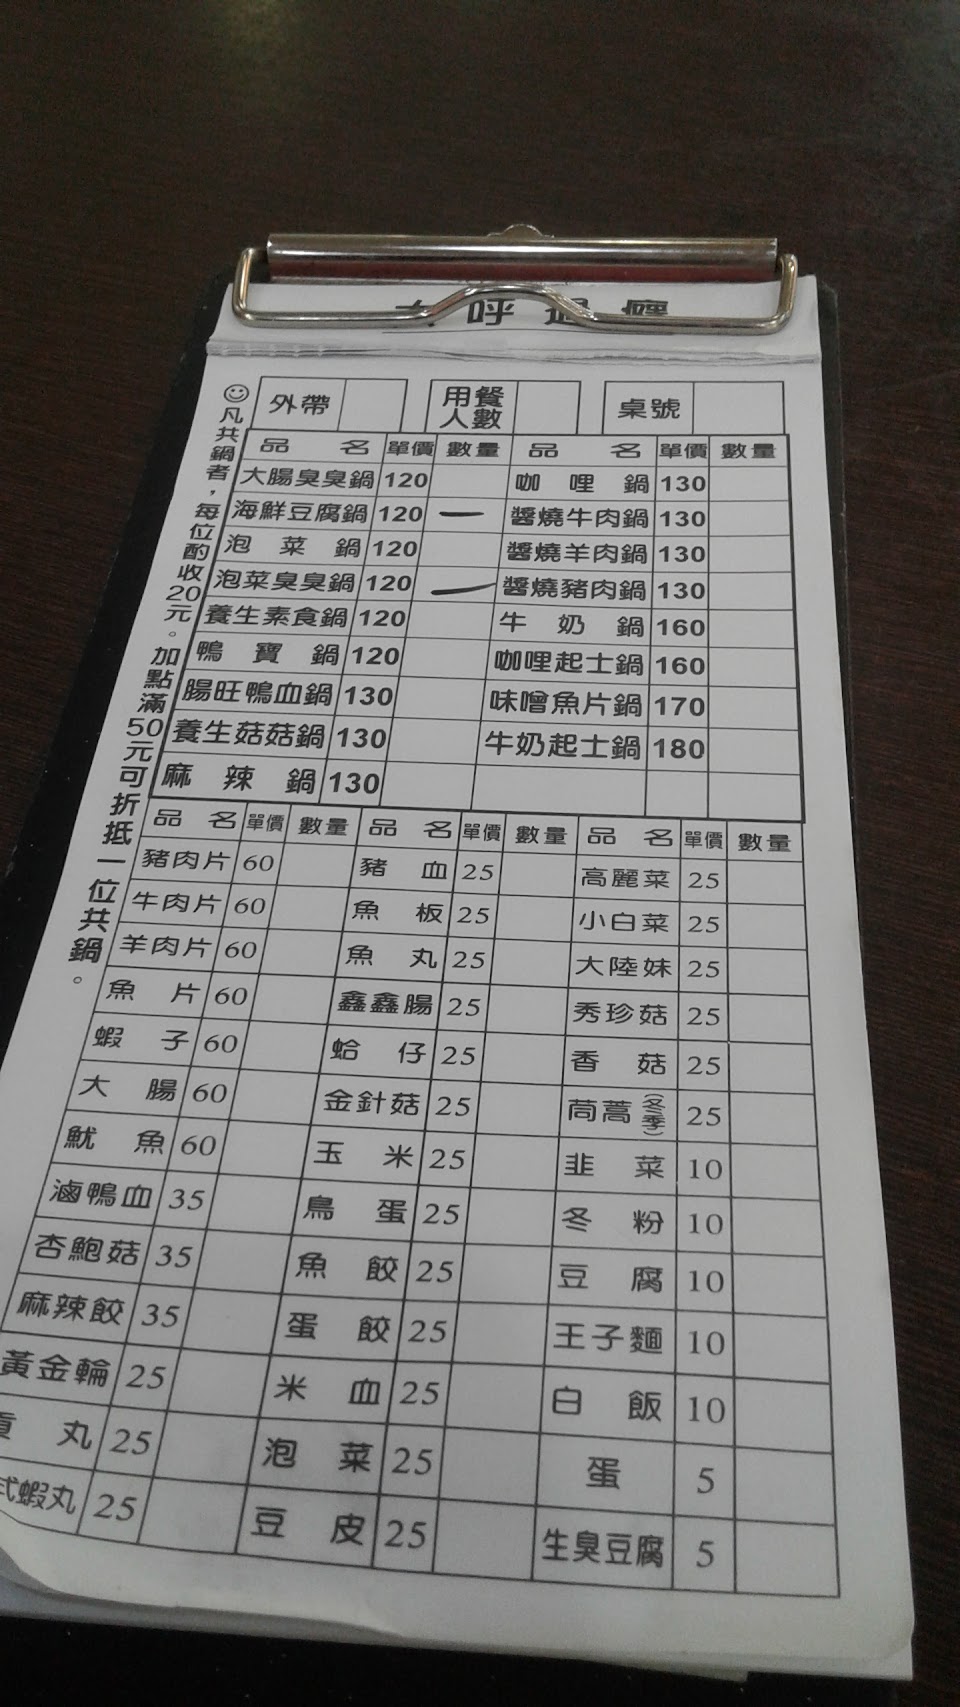 大呼過癮
外帶 用餐人數 桌號
品名 單價 數量 品名 單價 數量
大腸臭臭鍋 120 咖哩鍋 130
海鮮豆腐鍋 120 一 醬燒牛肉鍋 130
泡菜鍋 120 醬燒羊肉鍋 130
泡菜臭臭鍋 120 一 醬燒豬肉鍋 130
養生素食鍋 120 牛奶鍋 160
鴨寶鍋 120 咖哩起士鍋 160
腸旺鴨血鍋 130 味噌魚片鍋 170
養生菇菇鍋 130 牛奶起士鍋 180
麻辣鍋 130
凡共鍋者，每位酌收20元。加點滿50元可折抵一位共鍋。
品名 單價 數量 品名 單價 數量 品名 單價 數量
豬肉片 60 豬血 25 高麗菜 25
牛肉片 60 魚板 25 小白菜 25
羊肉片 60 魚丸 25 大陸妹 25
魚片 60 鑫鑫腸 25 秀珍菇 25
蝦子 60 蛤仔 25 香菇 25
大腸 60 金針菇 25 茼蒿(冬季) 25
魷魚 60 玉米 25 韭菜 10
滷鴨血 35 鳥蛋 25 冬粉 10
杏鮑菇 35 魚餃 25 豆腐 10
麻辣餃 35 蛋餃 25 王子麵 10
黃金輪 25 米血 25 白飯 10
貢丸 25 泡菜 25 蛋 5
式蝦丸 25 豆皮 25 生臭豆腐 5